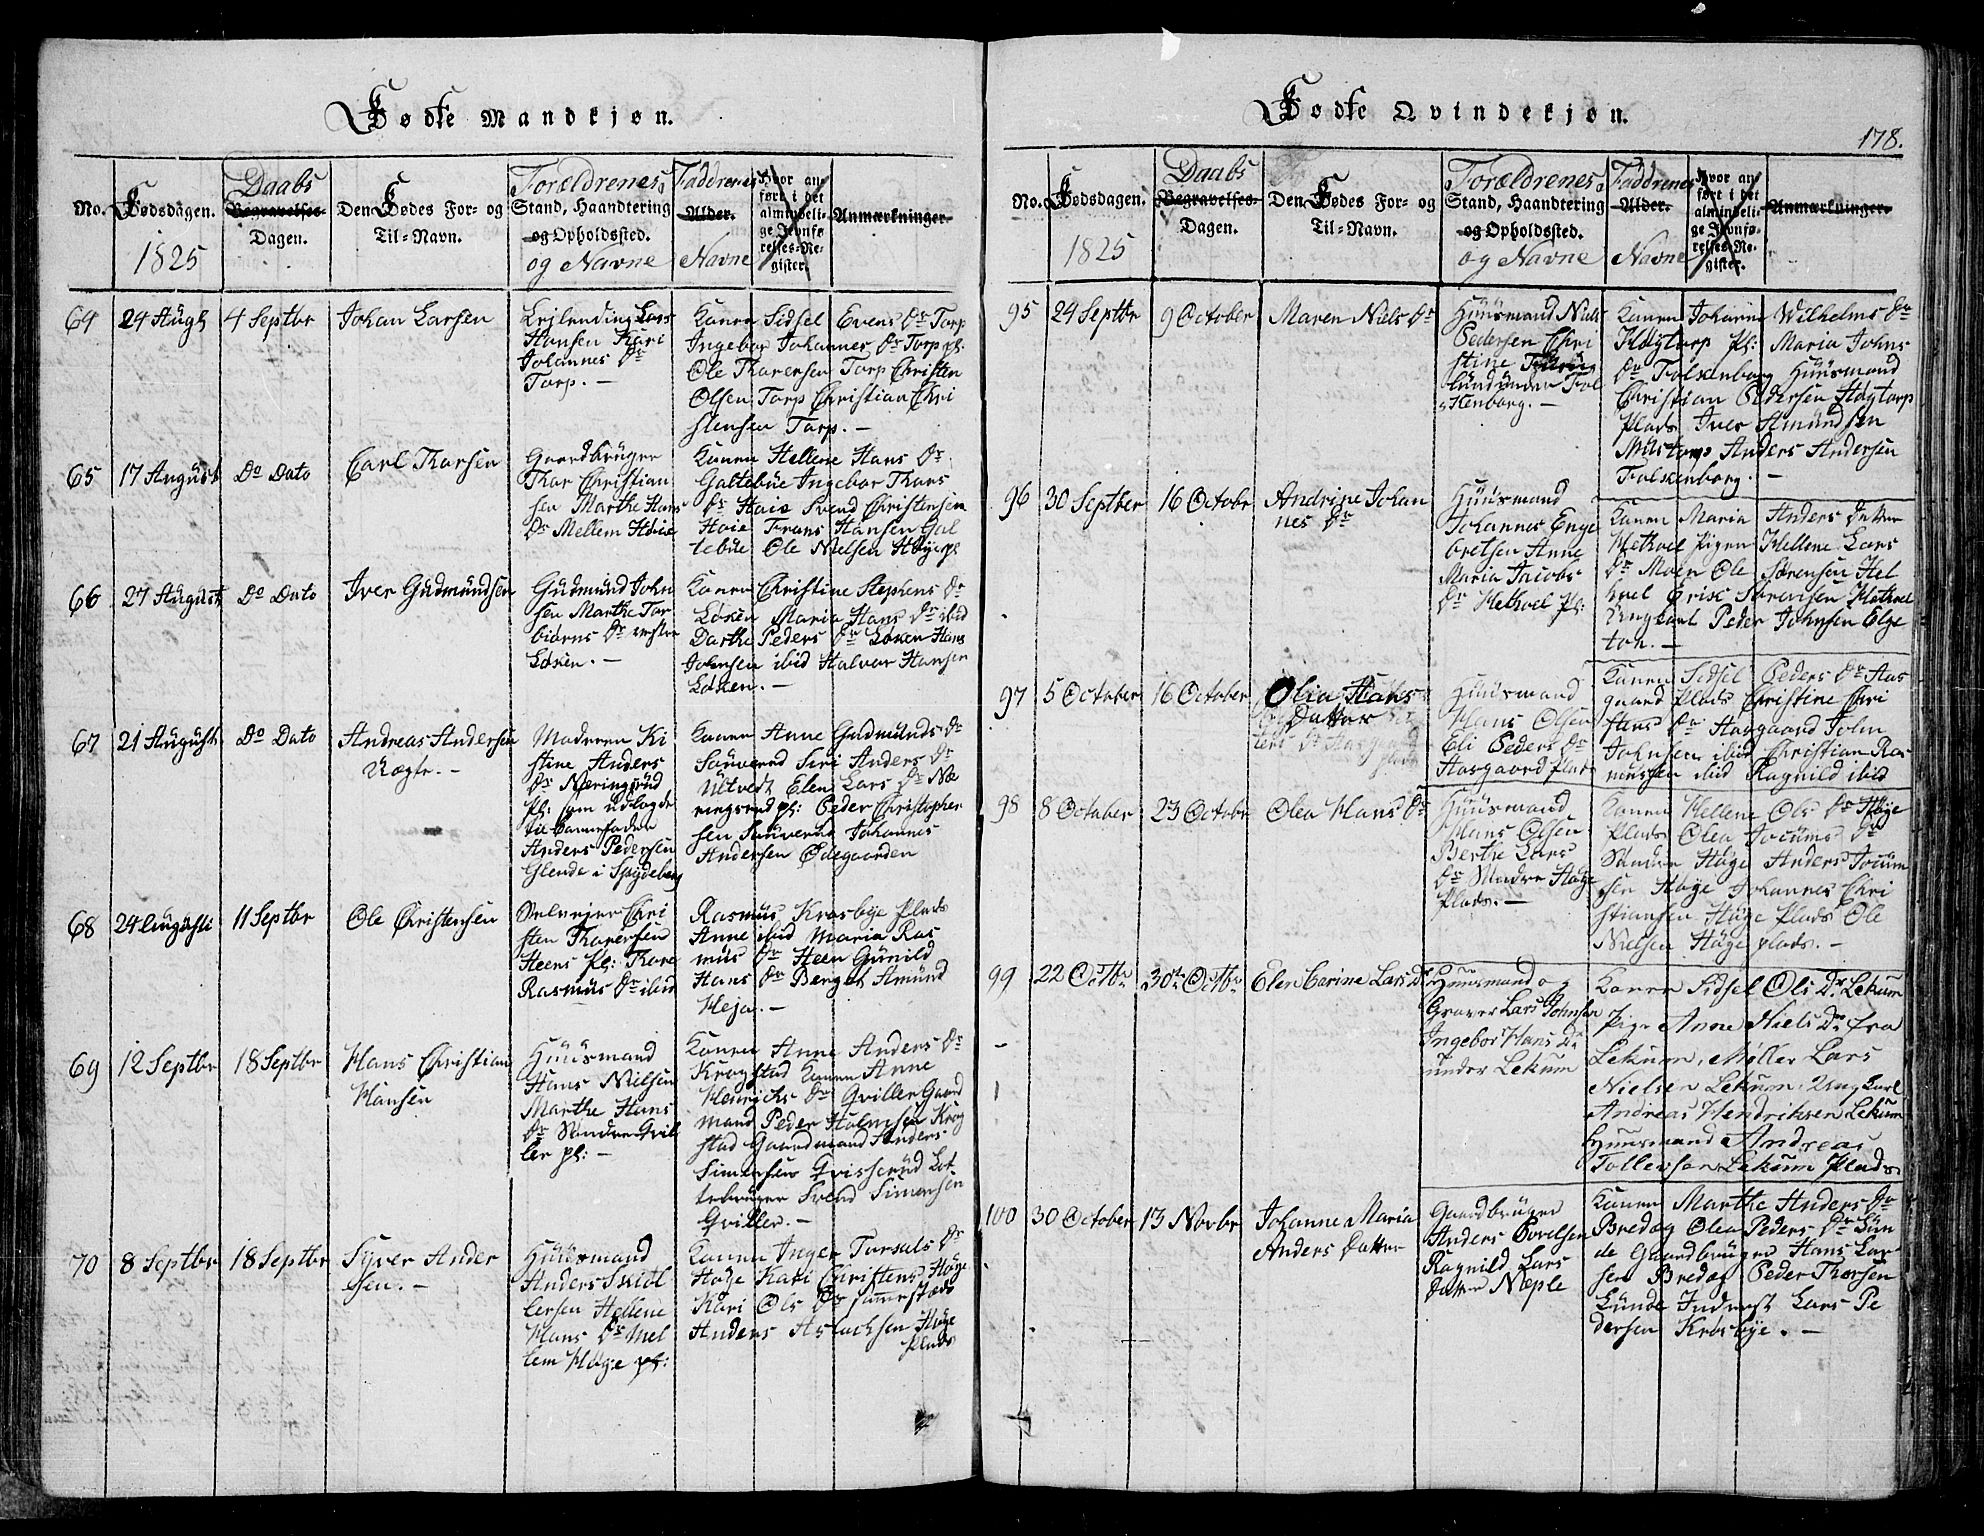 Fødte Mandkjøn.
No.
Fødsdagen.
1825
Daabs
Begravelses-
Dagen.
Den Fødes For- og
Til-Navn.
Forældrenes
Stand, Haandtering
og Opholdssted.
og Navne
Faddrenes
Alder.
Navne
Hvor an-
ført i det
almindeli-
ge Jevnfø-
relses-Re-
gister.
Anmærkninger.
64
24 Augt
4 Septbr
Johan Larsen
Leilending Lars
Hansen Kari
Johannes Dr
Torp. –
Konen Sidsel Evens Dr Torp
Ingebor Johannes Dr Torp pl:
Ole Thoresen Torp Christen
Olsen Torp Christian Chri
stensen Torp. –
65
17 August
Do Dato
Carl Thorsen
Gaardbruger
Thor Christian
sen Marthe Hans
Dr Mellem Høie
Konen Hellene Hans Dr
Galtebüe Ingebor Thors
Dr Høie Svend Christensen
Høie Frans Hansen Gal
tebüe Ole Nielsen Høye pl
66
27 August
Do Dato
Iver Gudmundsen
Gudmund John
sen Marthe Tor
biørns Dr
Løken. –
Konen Christine Stephens Dr
Løken Maria Hans Dr ibid
Dorthe Peders Dr Løken Hans
Johnsen ibid Halvor Hansen
Løken. –
67
21 August
Do Dato
Andreas Andersen
Uægte. –
Moderen Ki
stine Anders
Dr Næringsrud
pl: som udlagde
til barnefader
Anders Pedersen
Glende i Spydeberg
Konen Anne Gudmunds Dr
Souverud Siri Anders Dr
Ultvedt Elen Lars Dr Næ
ringsrud pl: Peder Christopher
sen Souverud Johannes
Andersen Ødegaarden
68
24 Augusti
11 Septbr
Ole Christensen
Selveier Chri
sten Thoresen
Heens pl: Kare
Rasmus Dr ibid
Rasmus Krosbye Plads
Anne ibid Maria Ras
mus Dr Heen Gunild
Hans Dr Berget Amund
Heja. –
69
12 Septbr
18 Septbr
Hans Christian
Hansen
Huusmand
Hans Nielsen
Marthe Hans
Dr Søndre Qvil
ler pl: –
Konen Anne Anders Dr
Krogstad Konen Anne
Henricks Dr Qviller Gaard
mand Peder Holmsen Krog
stad Gaardmand Anders
Simensen Grisserud Lot
tebruger Svend Simensen
Qviller. –
70
8 Septbr
18 Septbr
Syver Ander
sen. –
Huusmand
Anders
lersen Hellene
Hans Dr Mel
lem Høge pl:
Konen Inger Torsals Dr
Høge Kari Christens Høge
Kari Ols Dr sammestæds
Anders Aslachsen Høge
Plads
Fødte Qvindekjøn.
178.
No.
Fødsdagen.
1825
Daabs
Begravelses-
Dagen.
Den Fødes For- og
Til-Navn.
Forældrenes
Stand, Haandtering
og Opholdssted.
og Navne
Faddrenes
Alder.
Navne
Hvor an-
ført i det
almindeli-
ge Jevnfø-
relses-Re-
gister.
Anmærkninger.
95
24 Septbr
9 October
Maren Niels Dr
Huusmand Niels
Pedersen Chri
stine
lund under Fol
kenborg. –
Konen Johanne Wilhelms Dr
Høytorp Pl: Maria Johns
Dr Folkenborg Huusmand
Christian Pedersen Høytorp
plads Iver Amundsen
Mustorp Anders Andersen
Folkenborg. –
96
30 Septber
16 Octobr
Andrine Johan
nes Dr
Huusmand
Johannes Enge
bretsen Anne
Maria Jacobs
Dr Hethoel Pl:
Konen Maria Anders Datter
Hethoel Pigen Hellene Lars
Dr Moen Ole Sørensen Het
hoel Erik Sørensen Hethoel
Ungkarl Peder Johnsen Elge
ton. –
97
5 October
16 October
Olia Hans
Datter
Huusmand
Hans Olsen
Eli Peders Dr
Aasgaard plads
Konen Sidsel Peders Dr Aas
gaard Plads Christine Chri
stians Dr Aasgaard John
Johnsen ibid Christian Ras
mussen ibid Ragnild ibid
98
8 October
23 Octobr
Olea Hans Dr
Huusmand
Hans Olsen
Berthe Lars
Dr Søndre Høge
plads. –
Konen Hellene Ols Dr Høge
plads Olea Jocums Dr
Søndre Høge Anders Jocum
sen Høye Johannes Chri
stiansen Høge Plads Ole
Nielsen Høge plads. –
99
22 Octbr
30te Octbr
Elen Carine Lars Dr
Huusmand og
Graver Lars Johnsen
Ingebor Hans Dr
under Lekum
Konen Sidsel Ols Dr Lekum
Pige Anne Niels Dr fra
Lekum, Møller Lars
Nielsen Lekum, Ung Karl
Andreas Hendriksen Lekum
Huusmand Andreas
Tollefsen Lekum Plads
100
30 October
13 Novbr
Johanne Maria
Anders Datter
Gaardbruger
Anders Povelsen
Ragnild Lars
datter Neple
Konen Marthe Anders Dr
Bredag Olea Peders Dr Lun
de Gaardbruger Hans Lar
sen Bredag Peder Thorsen
Lunde Inderst Lars Pe
dersen Krosbye. –